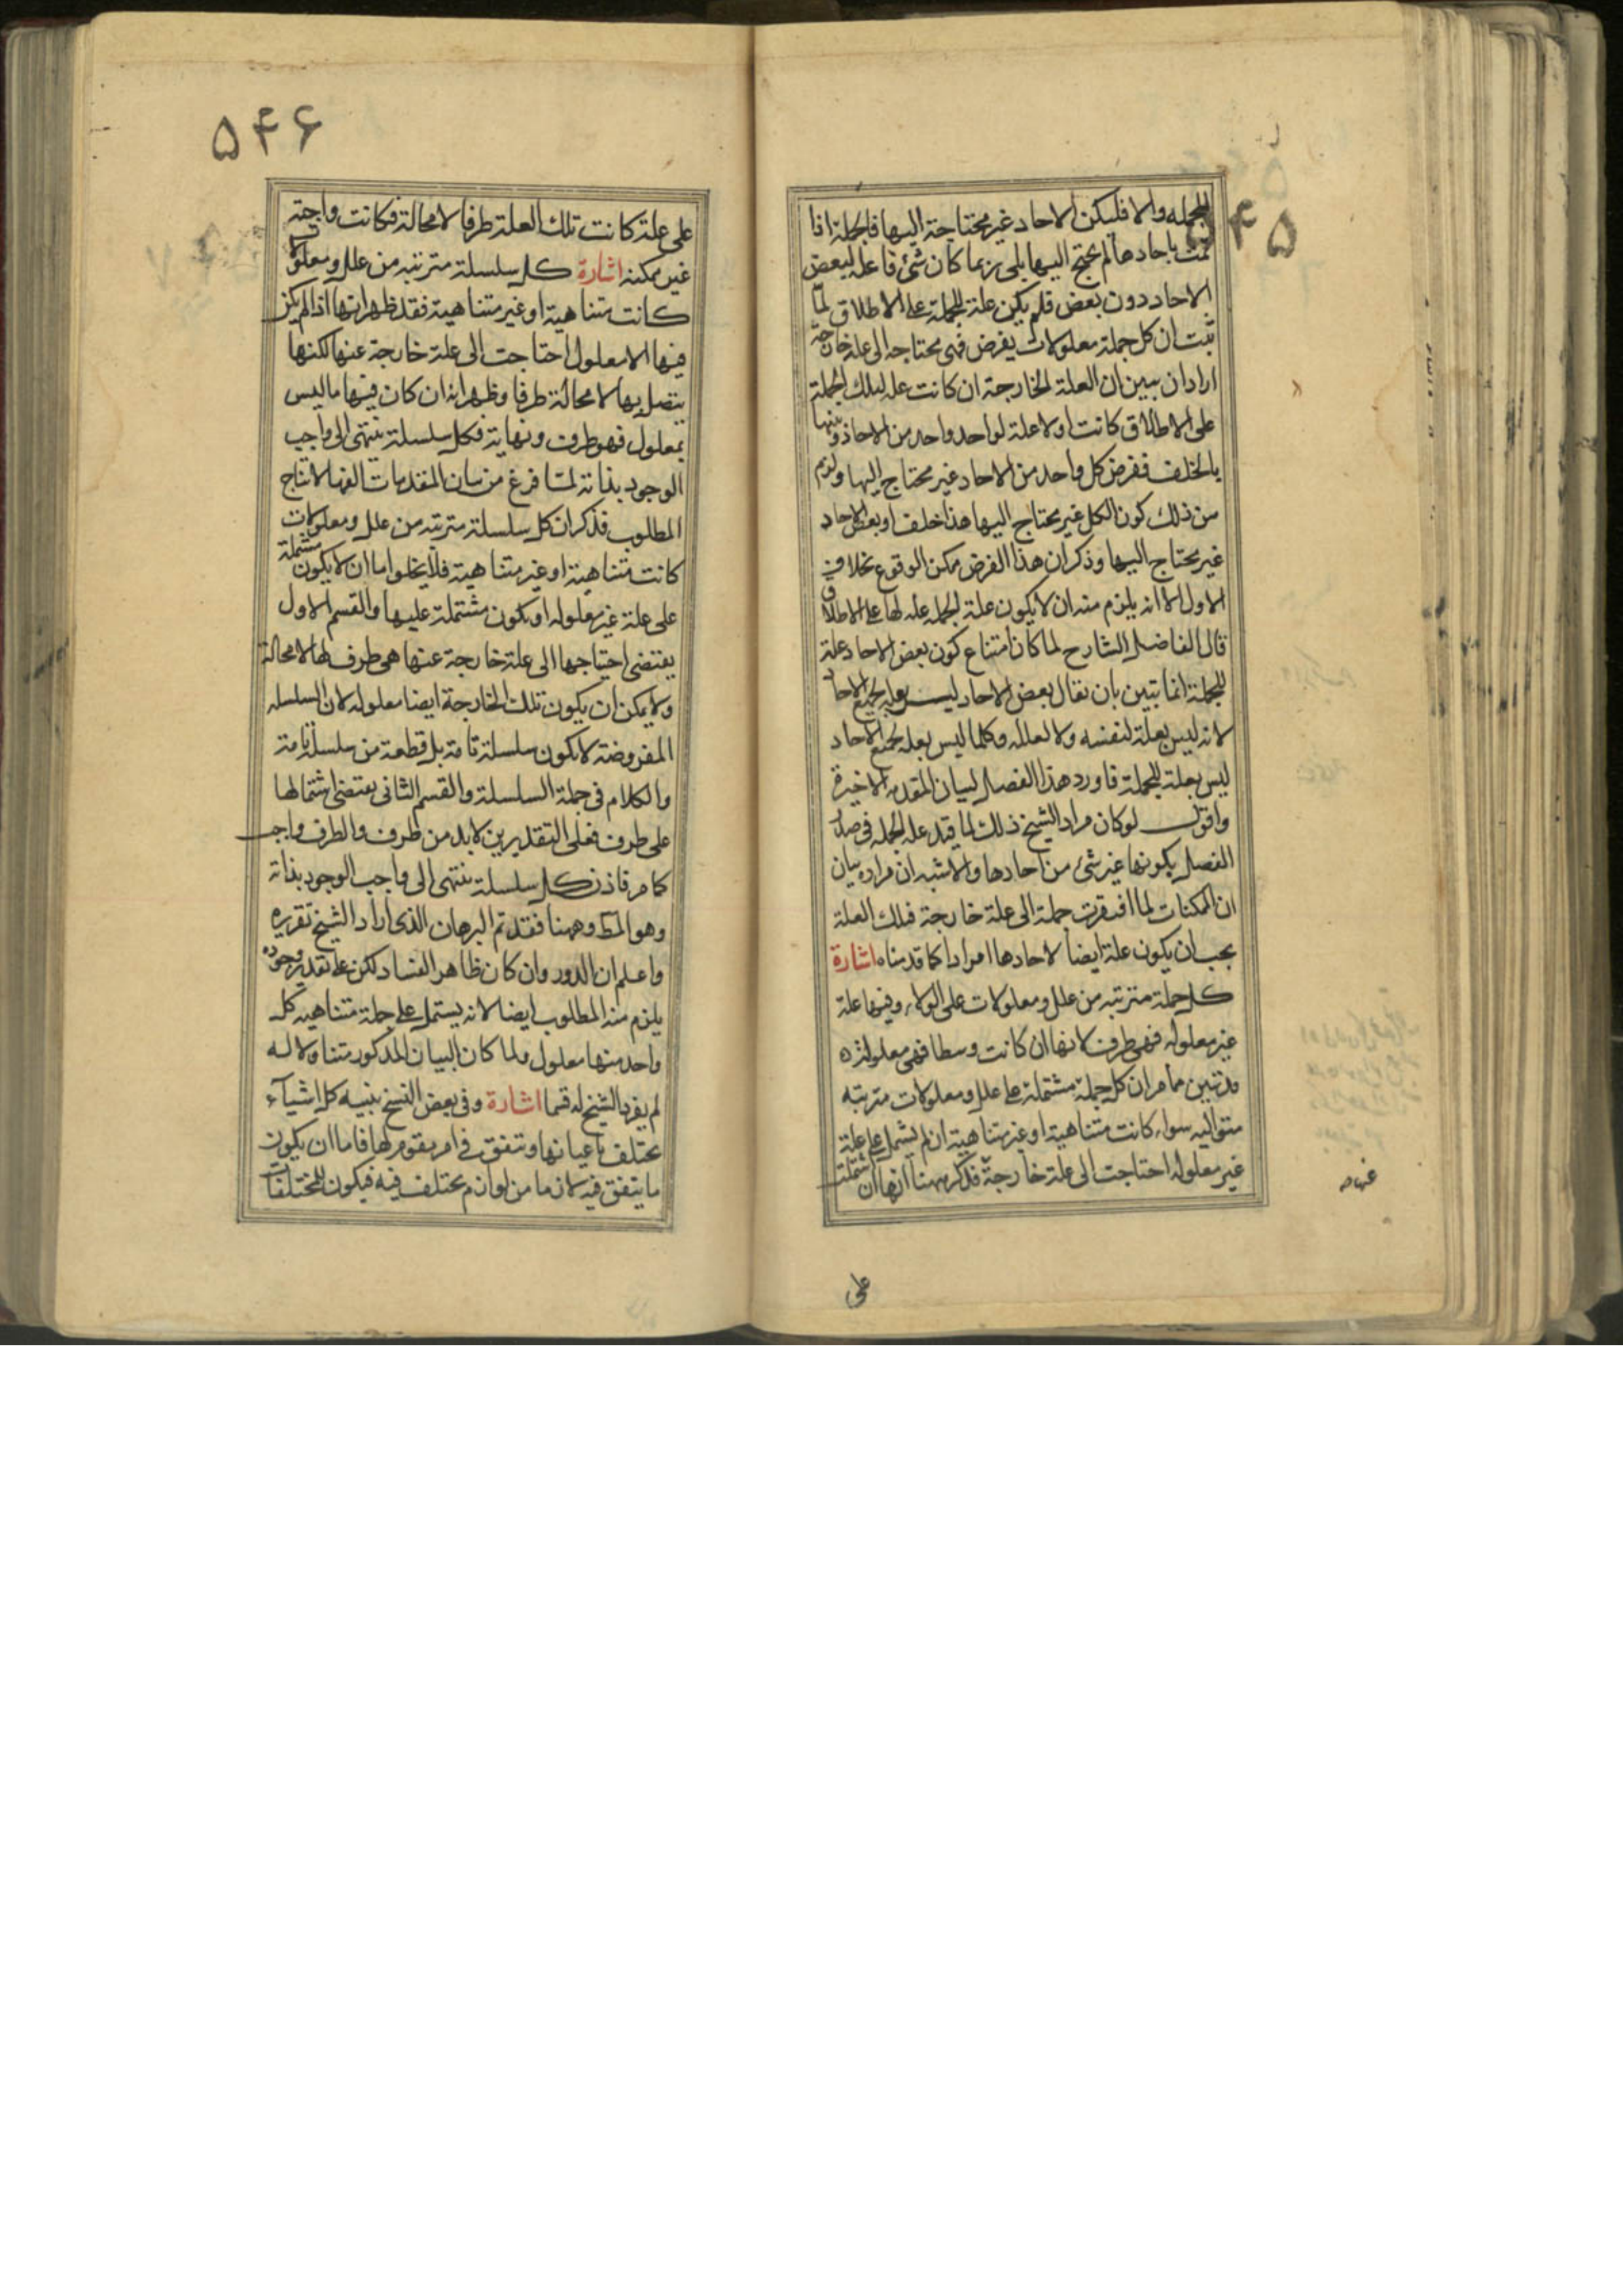 ۵۴۵
للجمله والا فليكن الاحاد غير محتاجة اليها فالجملة اذا
تمت باحادها لم يحتج اليها بلى ربما كان شئ ما علة لبعض
الاحاد دون بعض فلم يكن علة للجملة على الاطلاق لما
ثبت ان كل جملة معلولات يفرض فهى محتاجه الى علة خارجة
اراد ان يبين ان العلة الخارجة ان كانت علة لتلك الجملة
على الاطلاق كانت اولا علة لواحد واحد من الاحاد وبينها
بالخلف ففرض كل واحد من الاحاد غير محتاج اليها ولزم
من ذلك كون الكل غير محتاج اليها هذا خلف او بعض الاحاد
غير محتاج اليها وذكر ان هذا الفرض ممكن الوقوع بخلاف
الاول الا انه يلزم منه ان لا يكون علة الجمله علة لها على الاطلاق
قال الفاضل الشارح لما كان امتناع كون بعض الاحاد علة
للجملة انما تبين بان يقال بعض الاحاد ليس بعلة لجميع الاحاد
لانه ليس بعلة لنفسه ولا لعلله وكلما ليس بعلة لجميع الاحاد
ليس بعلة للجملة فاورد هذا الفصل لبيان المقدمه الاخيرة
واقول لو كان مراد الشيخ ذلك لما قيد علة الجمله فى صدر
الفصل بكونها غير شئ من احادها والاشبه ان مراده بيان
ان الممكنات لما افتقرت جملة الى علة خارجة فتلك العلة
يجب ان يكون علة ايضا لاحادها افرادا كما قدمناه اشارة
كل جملة مترتبه من علل ومعلولات على الولاء وفيها علة
غير معلوله فهى طرف لانها ان كانت وسطا فهى معلولة
قد تبين مما مر ان كل جملة مشتملة على علل ومعلولات مترتبه
متواليه سواء كانت متناهية او غير متناهية ان لم يشتمل على علة
غير معلوله احتاجت الى علة خارجة فذكر ههنا انها ان اشتملت
على
۵۴۶
على علة كانت تلك العلة طرفا لا محالة فكانت واجبة
غير ممكنه اشارة كل سلسلة مترتبه من علل ومعلولات
كانت متناهية او غير متناهية فقد ظهر انها اذا لم يكن
فيها الا معلول احتاجت الى علة خارجة عنها لكنها
يتصل بها لا محالة طرفا وظهر انه ان كان فيها ما ليس
بمعلول فهو طرف ونهاية فكل سلسلة ينتهى الى واجب
الوجود بذاته لما فرغ من بيان المقدمات الفها لانتاج
المطلوب فذكر ان كل سلسلة مترتبه من علل ومعلولات
كانت متناهية او غير متناهية فلا يخلوا اما ان لا يكون مشتملة
على علة غير معلوله او يكون مشتملة عليها والقسم الاول
يقتضى احتياجها الى علة خارجة عنها هى طرف لها لا محالة
ولا يمكن ان يكون تلك الخارجة ايضا معلوله لان السلسله
المفروضة لا يكون سلسلة تامة بل قطعة من سلسلة تامة
والكلام فى جملة السلسلة والقسم الثانى يقتضى اشتمالها
على طرف فعلى التقديرين لا بد من طرف والطرف واجب
كما مر فاذن كل سلسلة ينتهى الى واجب الوجود بذاته
وهو المط وههنا فقد تم البرهان الذى اراد الشيخ تقريره
واعلم ان الدور وان كان ظاهر الفساد لكن على تقدير وجوده
يلزم منه المطلوب ايضا لانه يشتمل على جملة متناهيه كل
واحد منها معلول ولما كان البيان المذكور متناولا له
لم يفرد الشيخ له قسما اشارة وفى بعض النسخ تنبيه كل اشياء
يختلف باعيانها ويتفق فى امر مقوم لها فاما ان يكون
ما يتفق فيه لازما من لوازم يختلف فيه فيكون للمختلفات